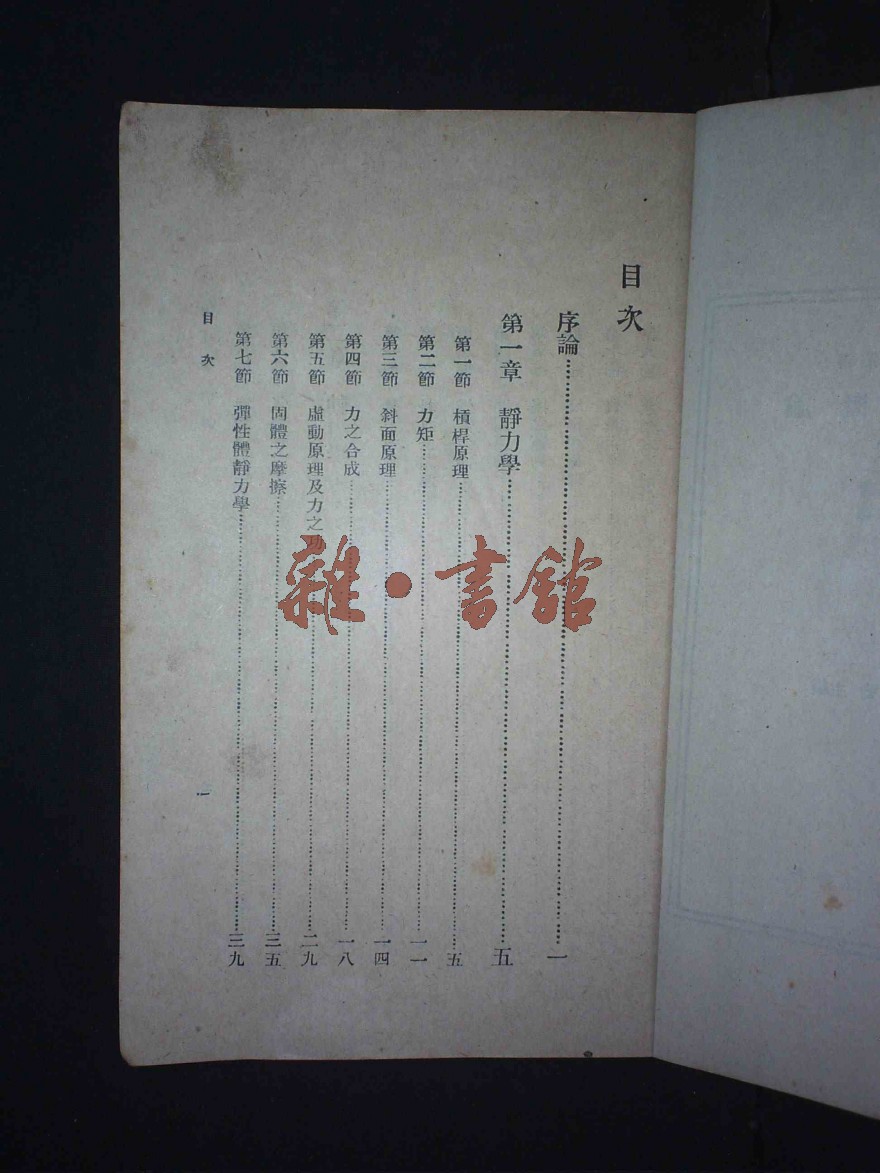 目次
序論……一
第一章　靜力學……五
第一節　槓桿原理……五
第二節　力矩……一一
第三節　斜面原理……一四
第四節　力之合成……一八
第五節　虛動原理及力之功……二九
第六節　固體之摩擦……三五
第七節　彈性體靜力學……三九
目次
一
雜·書館